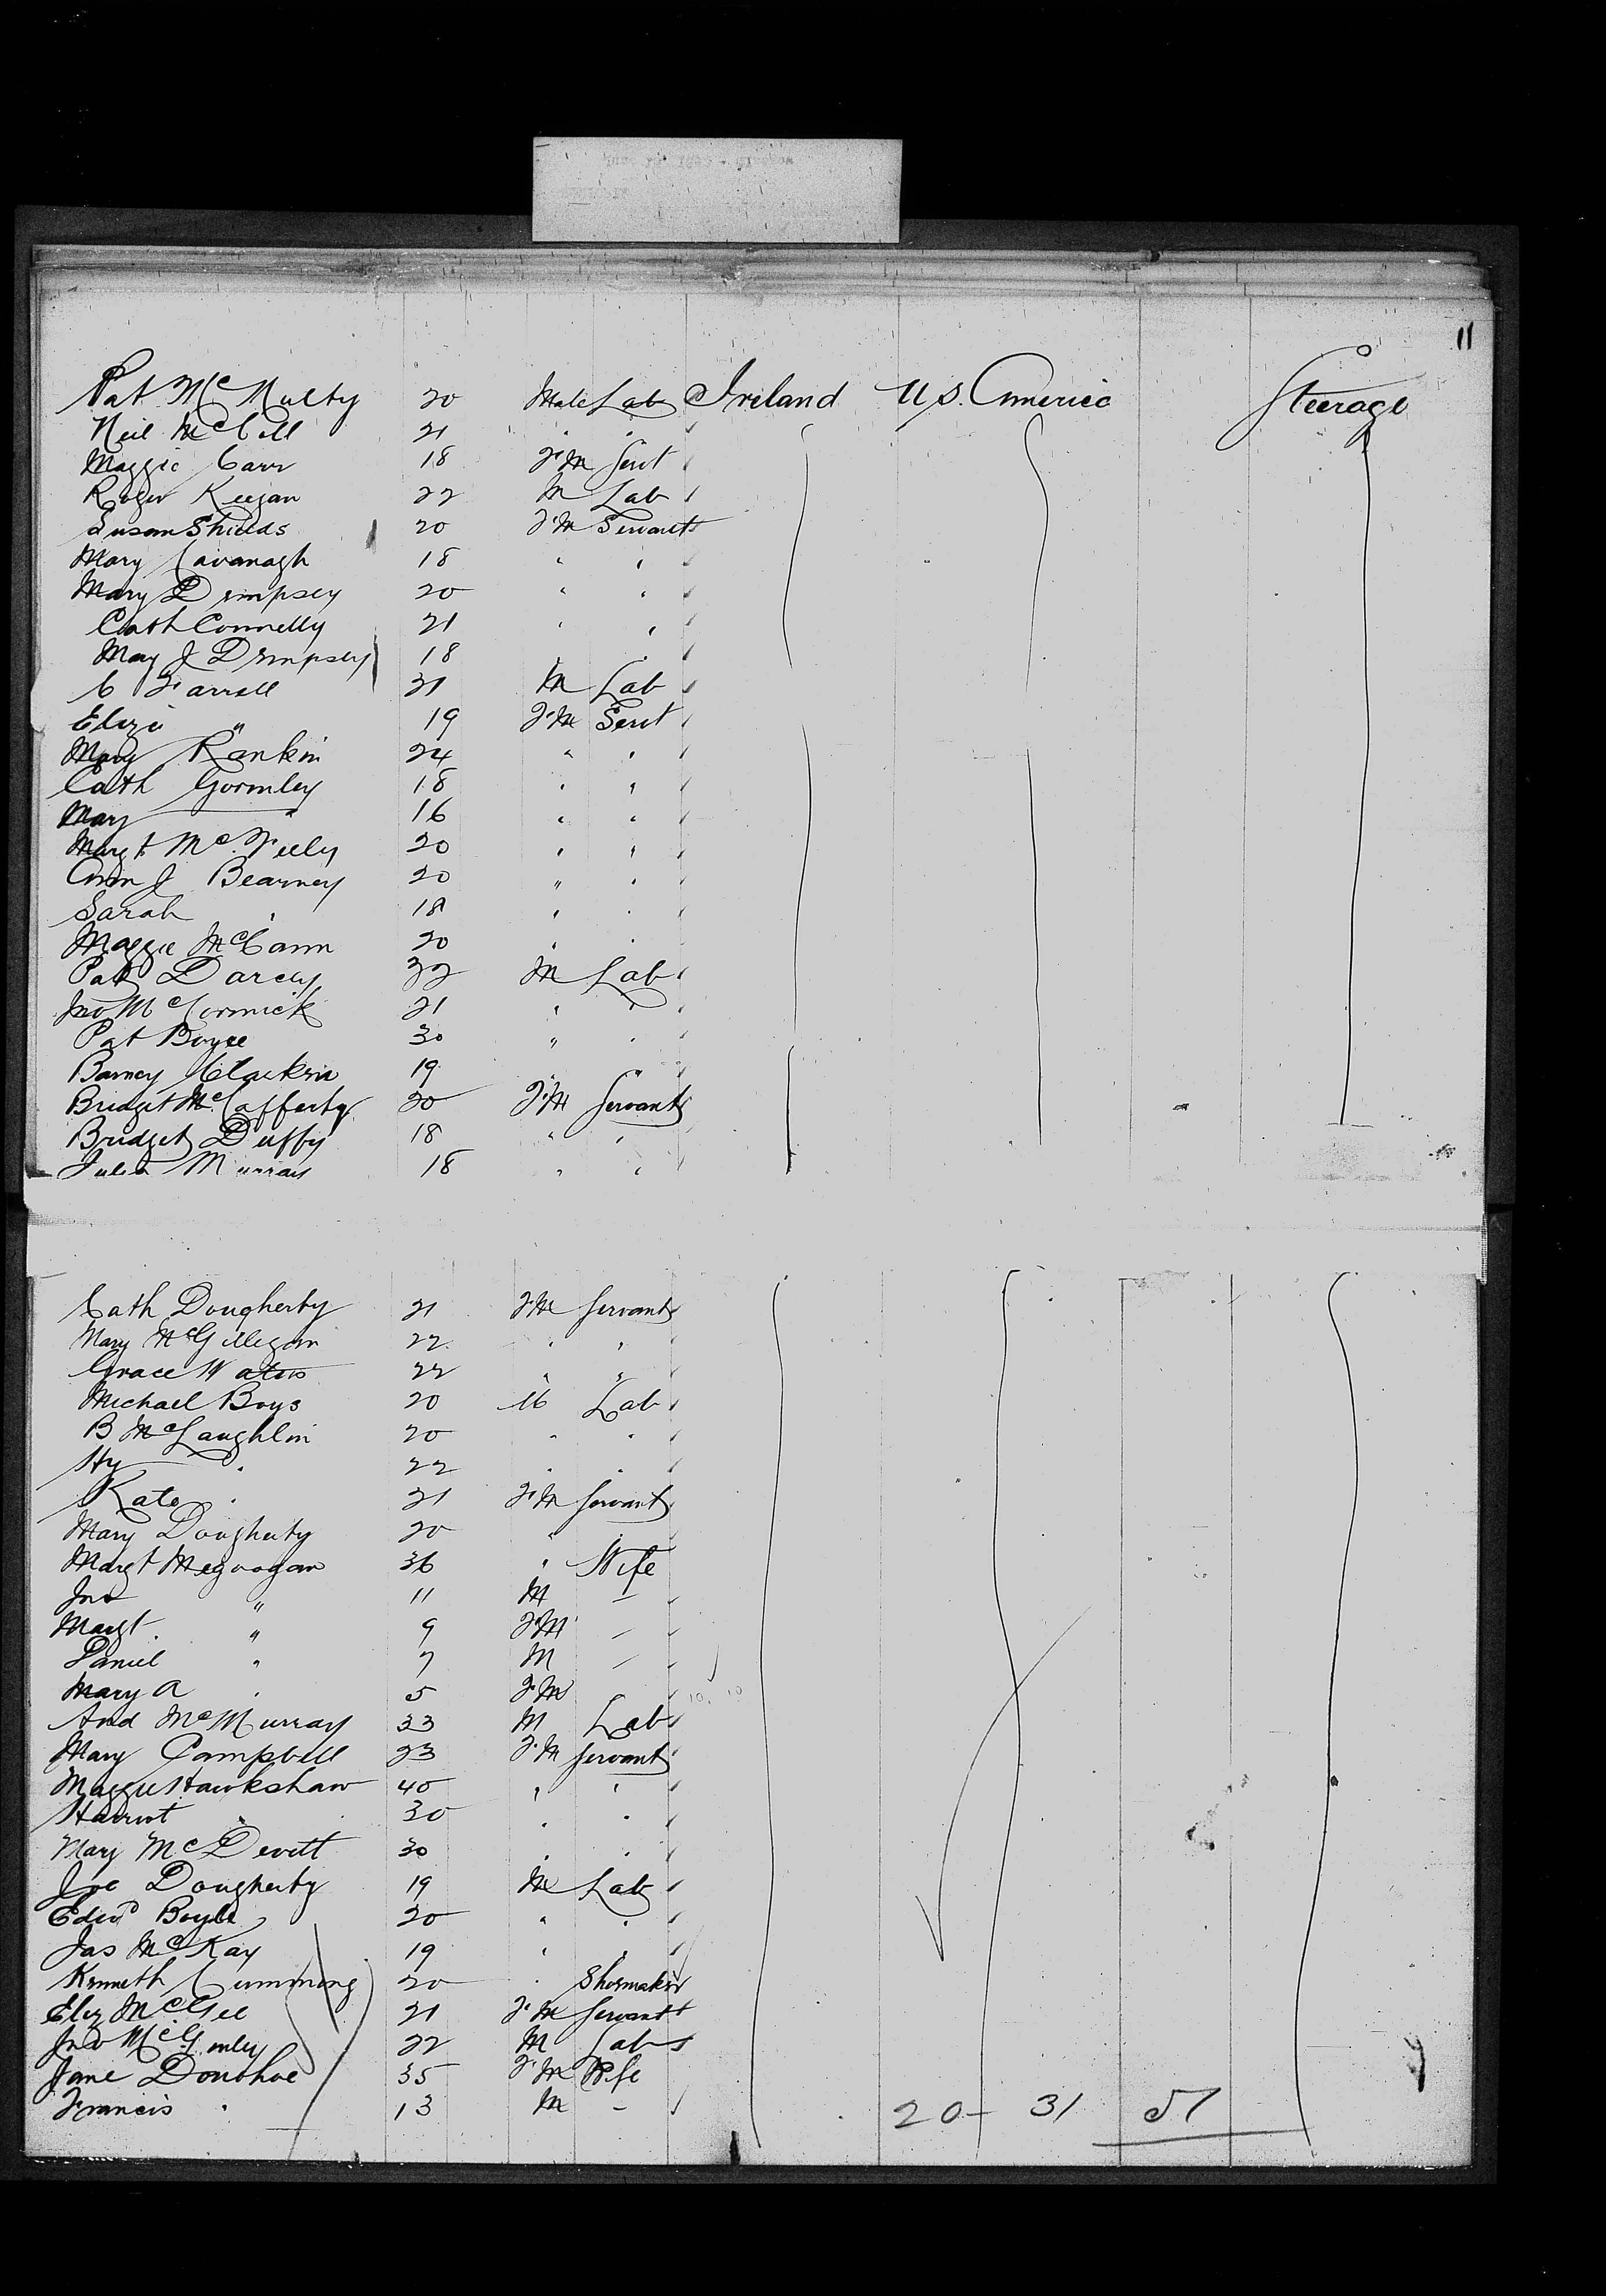 11
Pat McNulty 20 Male Lab Ireland U.S. America Steerage
Neil McColl 21 " "
Maggie Carr 18 F.M Servt
Roger Keegan 22 M Lab
Susan Shields 20 F.M Servants
Mary Cavanagh 18 " "
Mary Dempsey 20 " "
Cath Connelly 21 " "
May J Dempsey 18 " "
C Farrell 21 M Lab
Eliza " 19 F.M Servt
Mary Rankin 24 " "
Cath Gormley 18 " "
Mary " 16 " "
Margt McFeely 20 " "
Ann J Bearney 20 " "
Sarah " 18 " "
Maggie McCann 20 " "
Pat Darcy 32 M Lab
Jno McCormick 21 " "
Pat Boyce 30 " "
Barney 19 " "
Bridget McCafferty 20 F.M Servants
Bridget Duffy 18 " "
Julia Murray 18 " "
Cath Dougherty 21 F.M Servants
Mary McGilligan 22 " "
Grace Waters 22 " "
Michael Boys 20 M Lab
B McLaughlin 20 " "
Hy " 22 " "
Kate " 21 F.M Servant
Mary Dougherty 20 " "
Margt Megoogan 36 " Wife
Jno " 11 M –
Margt " 9 F.M –
Daniel " 7 M –
Mary A " 5 F.M
And McMurray 33 M Lab
Mary Campbell 23 F.M Servant
Maggie Hawkshaw 40 " "
Harriot " 30 " "
Mary McDevitt 30 " "
Joe Dougherty 19 M Lab
Edwd Boyle 20 " "
Jas McKay 19 " "
Kenneth Cumming 20 " Shoemaker
Eliz McGee 21 F.M Servant
Jno McGinley 22 M Lab
Jane Donohoe 35 F.M Wife
Francis " 13 M –
20 – 31 51